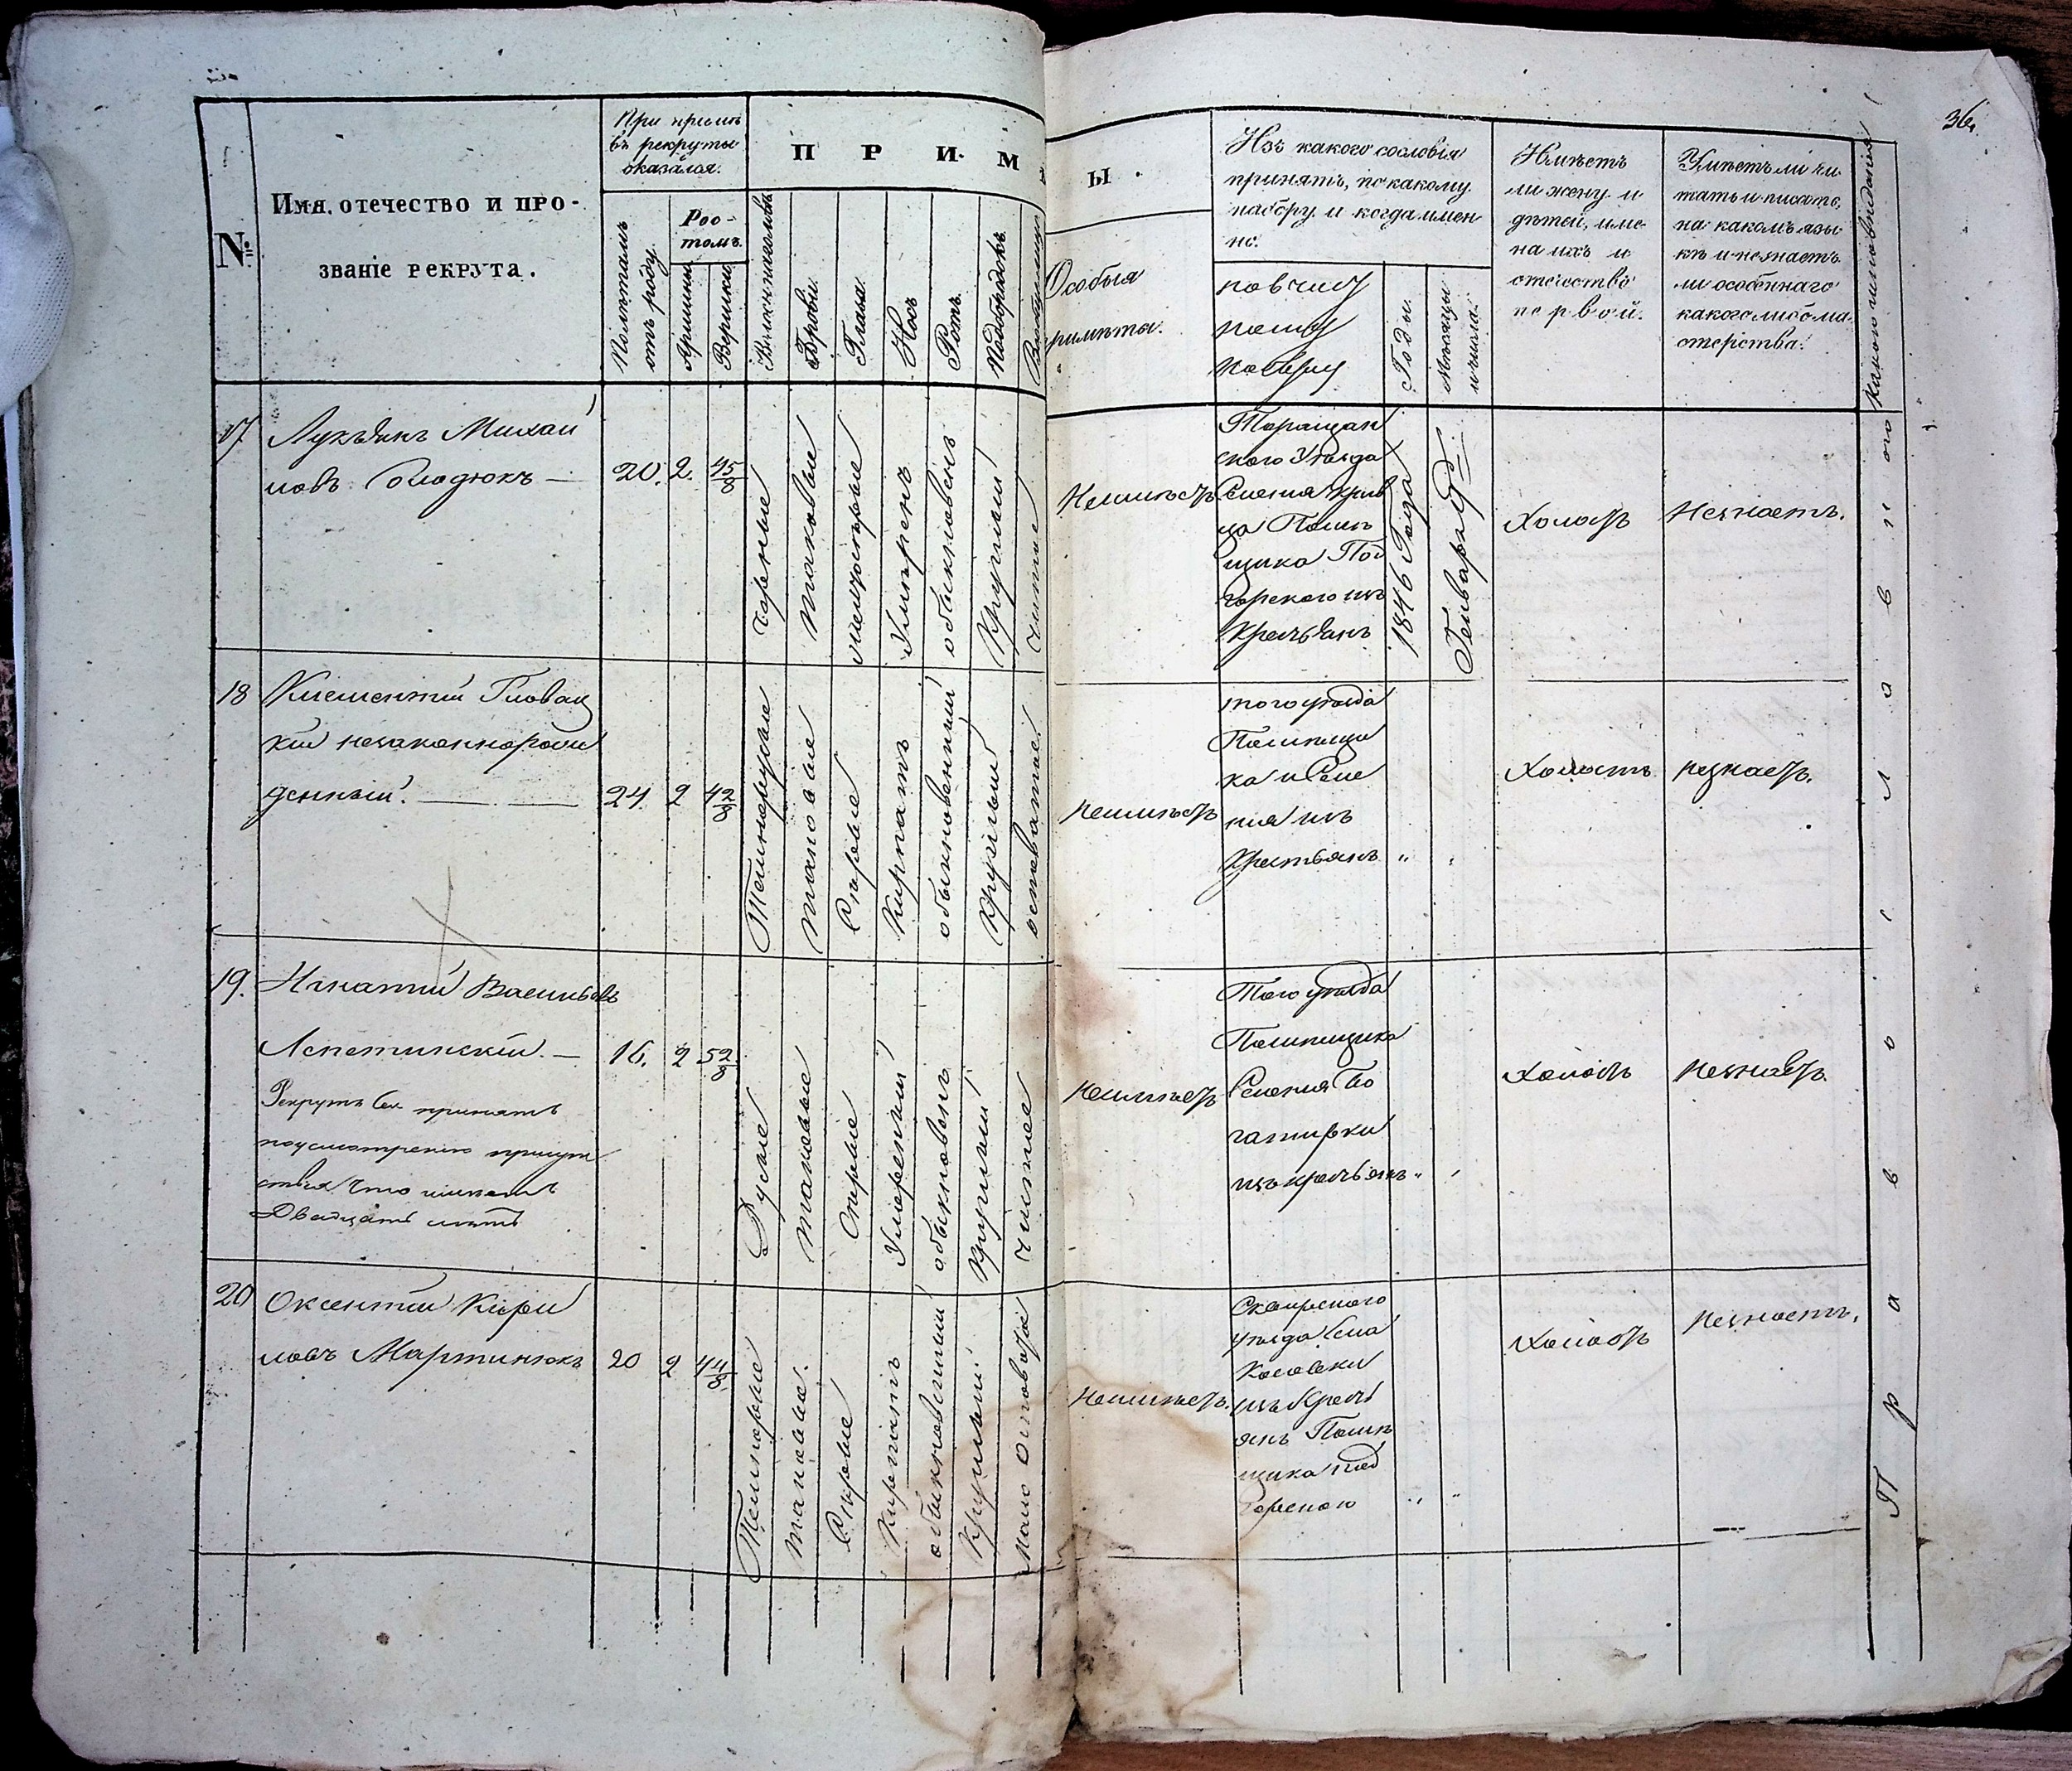 36.
№
Имя, отечество и про-
званіе рекрута.
При пріемѣ
въ рекруты
оказался.
Полѣтамъ
отъ роду
Рос-
томъ.
Аршины
Вершки
П Р И М
Волосы на головѣ
Брови
Глаза
Носъ
Ротъ
Подбородокъ
Ы.
Особыя
римѣты.
Изъ какого сословія
принятъ, по какому
набору и когда имен-
но.
Годы.
Мѣсяцы
и числа.
Имѣетъ
ли жену и
дѣтей, име-
на ихъ и
отечество
первой.
Умѣетъ ли чи-
тать и писать,
на какомъ язы-
кѣ и незнаетъ
ли особеннаго
какого либо ма-
стерства.
Какого исповѣданія
17
Лукьянъ Михай
ловъ
20. 2. 4 5/8
Черные
таковые
Умѣренъ
обыкновенъ
Круглый
чистое
Неимѣетъ
Таращан
скаго Уѣзда
Селенія
Помѣ
щика Под
горскаго изъ
Крестьянъ
1846 Года
Генваря
Холостъ
Незнаетъ.
18
Климентій Гловац
кій незаконнорож
денный.
24 2 4 2/8
Темнорусые
таковые
Сѣрые
Курпатъ
обыкновенный
Круглый
осповатое
неимѣетъ
того уѣзда
Помѣщи
ка и Селе
нія изъ
Крестьянъ " "
Холостъ
незнаетъ.
19.
Игнатій Васильевъ
Лепетинскій.
Рекрутъ сей принятъ
поусмотренію присут
ствія что имѣетъ
Двадцать лѣтъ
16. 2 5 2/8
Русые
таковые
Сѣрые
Умѣренный
обыкновенъ
Круглый
Чистое
неимѣетъ
Того уѣзда
Помѣщика
Селенія Бо
гатырки
изъ крестьянъ " "
Холостъ
незнаетъ.
20
Оксентій Кири
ловъ Мартинюкъ
20 2 4 4/8
Темнорусые
таковые.
Сѣрые
Курпатъ
обыкновенный
Круглый
Мало осповатое
Неимѣетъ.
Сквирскаго
уѣзда Села
изъ Крест
янъ Помѣ
щика Под
горскаго " "
Холостъ
незнаетъ.
П р а в о с л а в н о го